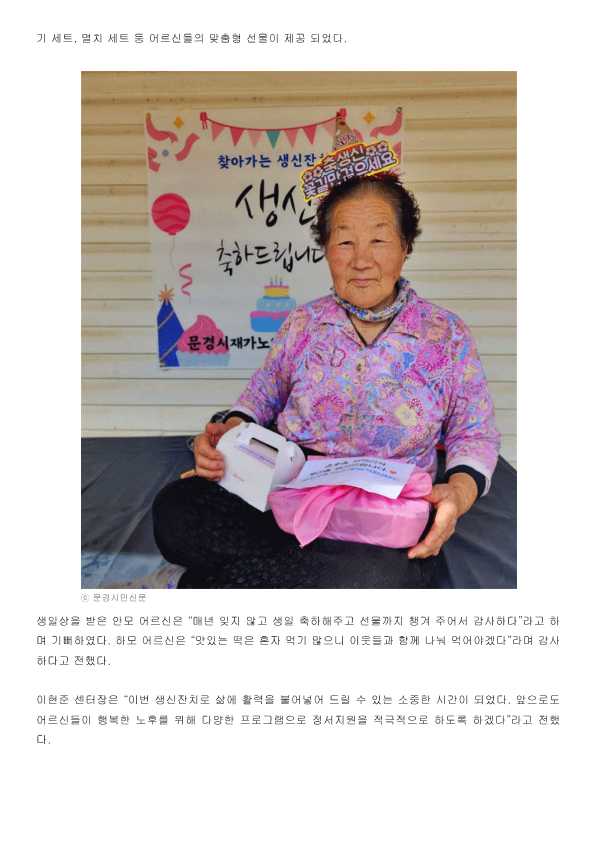 기 세트, 멸치 세트 등 어르신들의 맞춤형 선물이 제공 되었다.
찾아가는 생신잔
축생신
꽃길만걸으세요
생신
축하드립니다
문경시재가노
ⓒ 문경시민신문
생일상을 받은 안모 어르신은 “매년 잊지 않고 생일 축하해주고 선물까지 챙겨 주어서 감사하다”라고 하
며 기뻐하였다. 하모 어르신은 “맛있는 떡은 혼자 먹기 많으니 이웃들과 함께 나눠 먹어야겠다”라며 감사
하다고 전했다.
이현준 센터장은 “이번 생신잔치로 삶에 활력을 불어넣어 드릴 수 있는 소중한 시간이 되었다. 앞으로도
어르신들이 행복한 노후를 위해 다양한 프로그램으로 정서지원을 적극적으로 하도록 하겠다”라고 전했
다.